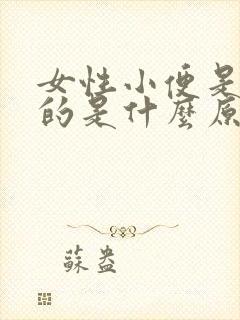 女性小便是
的是什麼原
蘇盎